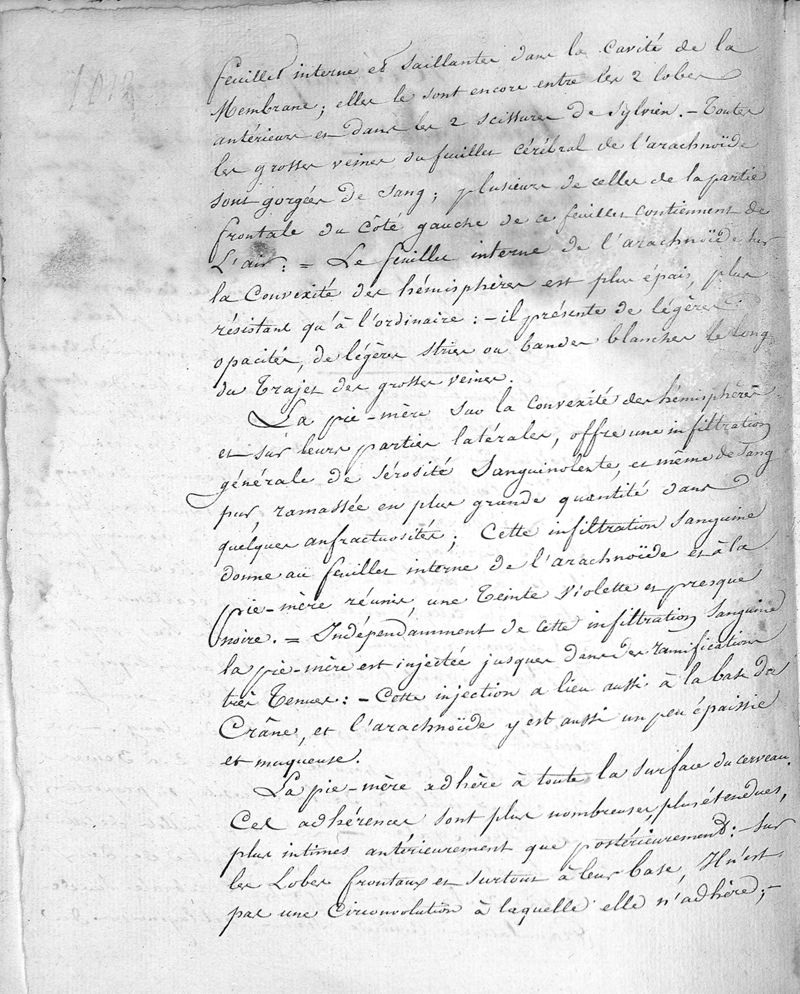 feuillet interne et saillantes dans la cavité de la
Membrane; elles le sont encore entre les 2 lobes
antérieurs et dans les 2 scissures de Sylvien. - Toutes
les grosses veines du feuillet cérébral de l'arachnoïde
sont gorgées de sang; plusieurs de celles de la partie
frontale du côté gauche de ce feuillet contiennent de
L'air: = Le feuillet interne de l'arachnoïde sur
la Convexité des hémisphères est plus épais, plus
résistant qu'à l'ordinaire: - il présente de légères
opacités, de légères stries ou bandes blanches le long
du Trajet des grosses veines.
La pie-mère sur la convexité des hémisphères
et sur leurs parties latérales, offre une infiltration
générale de sérosité Sanguinolente, et même de sang
pur, ramassée en plus grande quantité dans
quelques anfractuosités; Cette infiltration sanguine
donne au feuillet interne de l'arachnoïde et à la
pie-mère réunis, une Teinte violette et presque
noire. = Indépendamment de cette infiltration Sanguine
la pie-mère est injectée jusques dans des ramifications
très Tenues: - Cette injection a lieu aussi à la base du
Crâne, et l'arachnoïde y est aussi un peu épaissie
et muqueuse.
La pie-mère adhère à toute la surface du cerveau.
Ces adhérences sont plus nombreuses, plus étendues,
plus intimes antérieurement que postérieurement: - sur
les Lobes frontaux et surtout à leur base, Il n'est
pas une Circonvolution à laquelle elle n'adhère; -